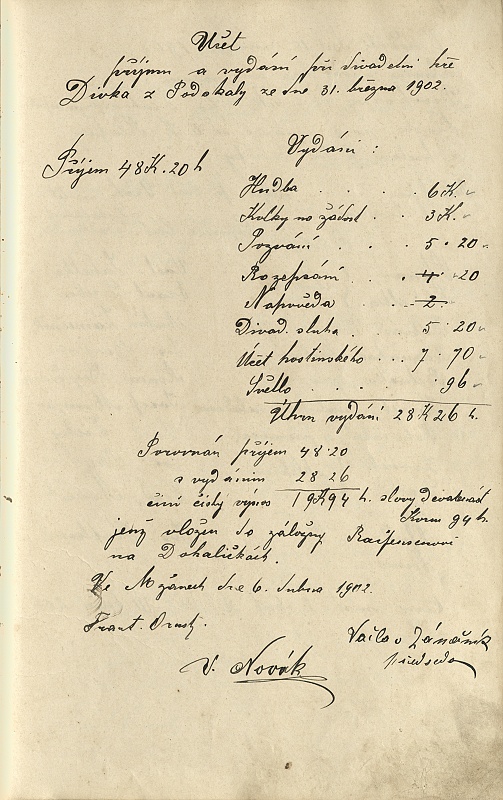 Účet
příjmu a vydání při divadelní hře
Divka z Podskaly ze dne 31. března 1902.
Příjem 48 K. 20 h
Vydání :
Hudba . . . . 6 K.
Kolky na žádost . . 3 K.
Pozvání . . . 5 . 20
Rozepsání . . . 4 . 20
Nápověda . . . 2.
Divad. sluha . . 5 20
Účet hostinského . . . 7 . 70
Světlo . . . . 96
Úhrn vydání 28 K 26 h.
Porovnán příjem 48 20
s vydáním 28 26
činí čistý výnos 19 K 94 h. slovy devatenáct
Korun 94 h.
jenž vložen do záložny Raifeisenovi
na Dohaličkách.
Ve Mžanech dne 6. dubna 1902.
Frant.
Václav
předseda
V. Novák